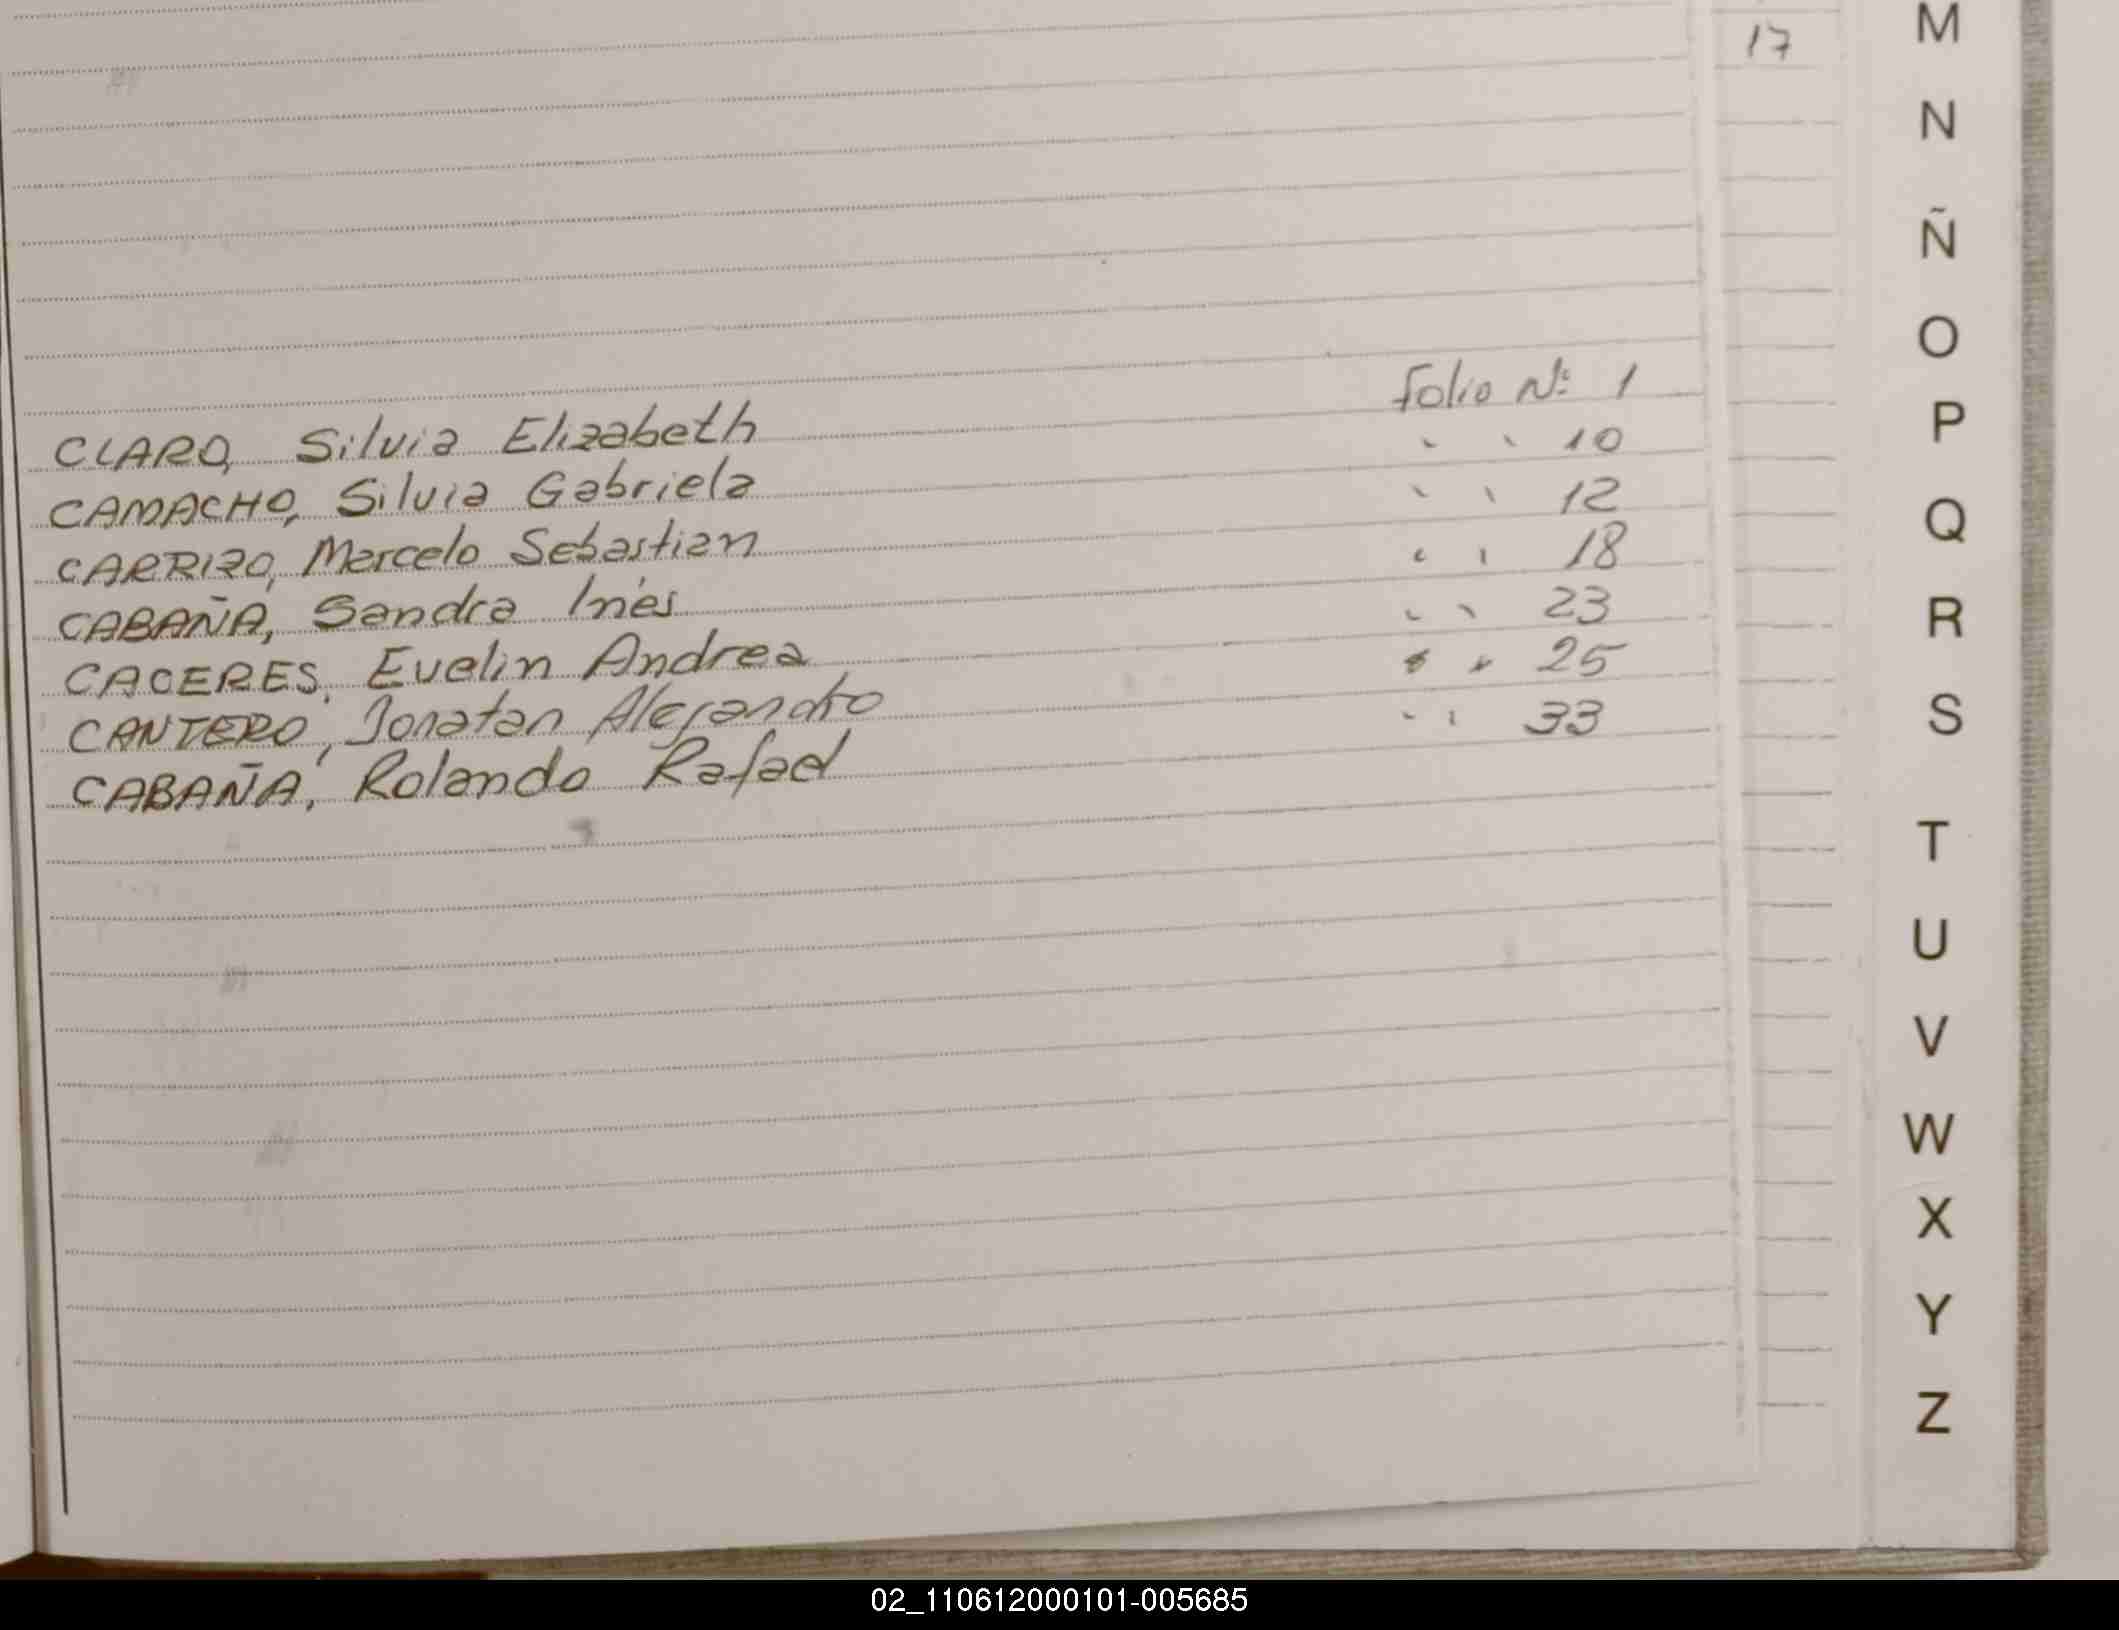 CLARO, Silvia Elizabeth Folio Nº: 1
CAMACHO, Silvia Gabriela " " 10
CARRIZO, Marcelo Sebastian " " 12
CABAÑA, Sandra Inés " " 18
CACERES, Evelin Andrea " " 23
CANTERO, Jonatan Alejandro " " 25
CABAÑA, Rolando Rafael " " 33
17
M
N
Ñ
O
P
Q
R
S
T
U
V
W
X
Y
Z
02_110612000101-005685